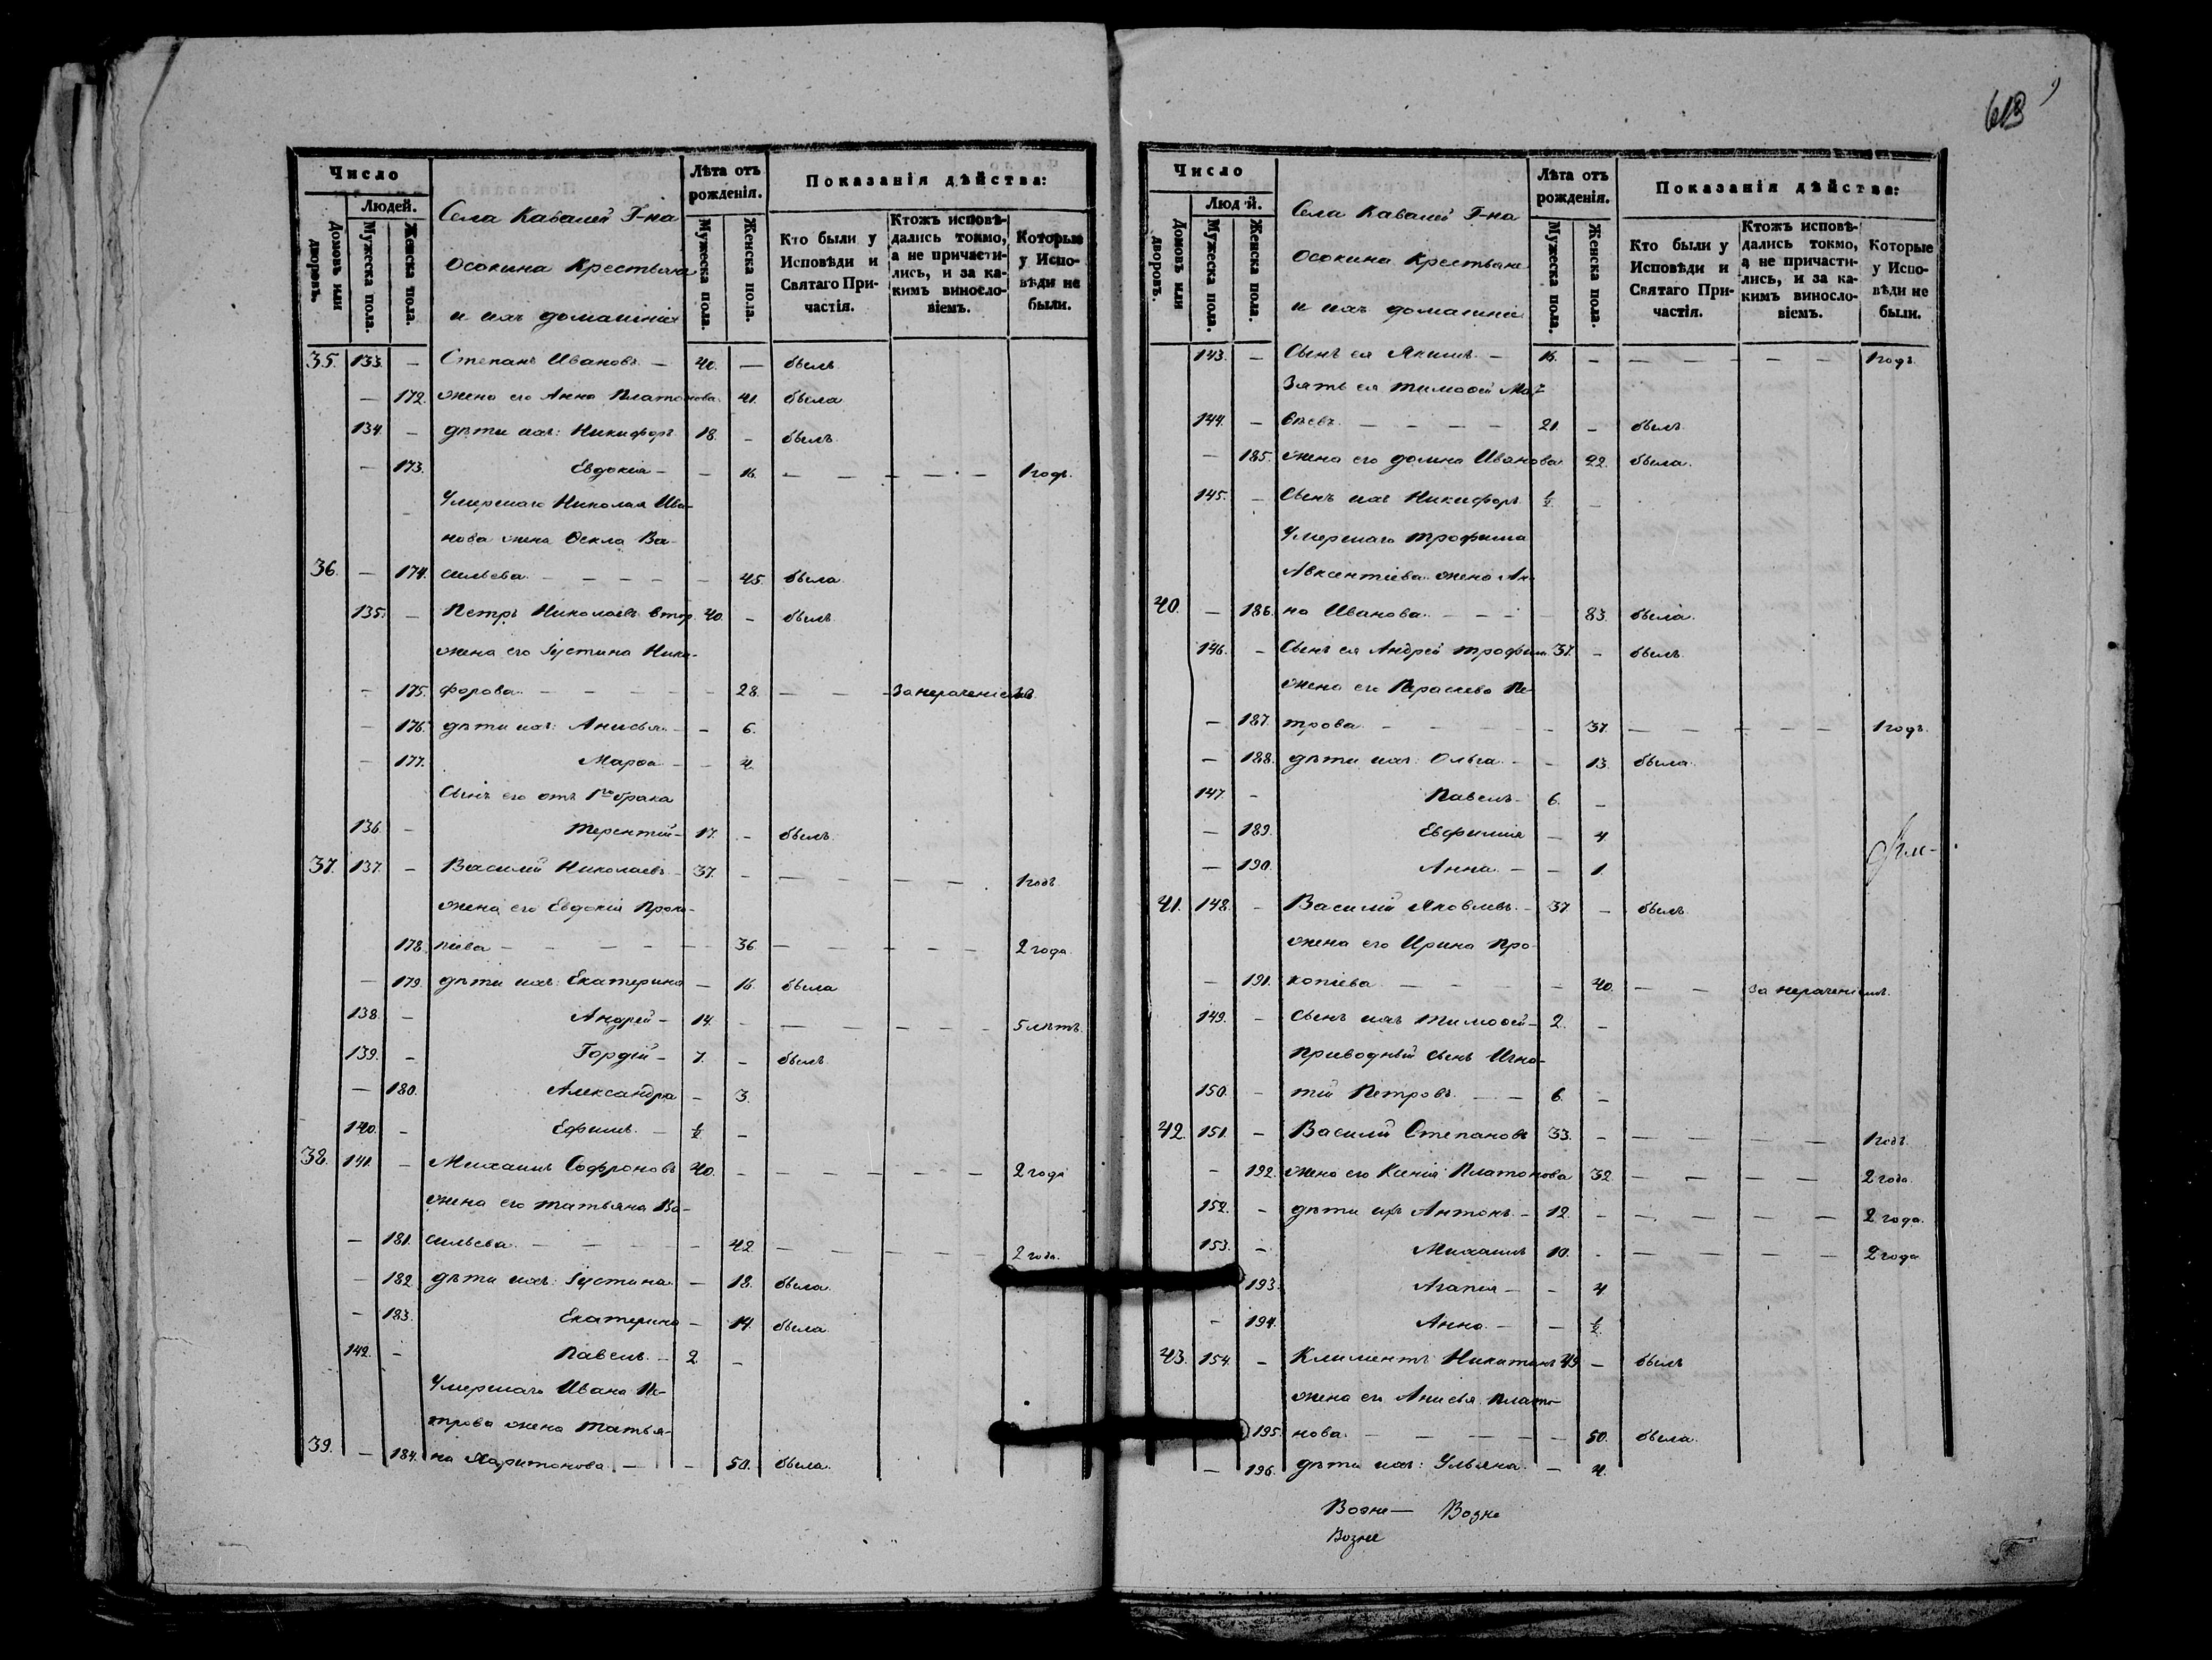 613
Число
Людей.
Домовъ или дворовъ.
Мужеска пола.
Женска пола.
Села Кавалей Г-на
Осокина Крестьяне
и ихъ домашніе
Лѣта отъ рожденія.
Мужеска пола.
Женска пола.
Показанія дѣйства:
Кто были у Исповѣди и Святаго Причастія.
Ктожъ исповѣдались токмо, а не причастились, и за какимъ винословіемъ.
Которые у Исповѣди не были.
35. 133. — Степанъ Ивановъ — 40. — былъ
— 172. жена его Анна Платонова. 41. была
134. — дѣти ихъ: Никифоръ 18. — былъ
— 173. Евдокія — — 16. — — — — — 1 годъ.
Умершаго Николая Ива-
нова жена Ѳекла Ва-
36. — 174. сильева. — — — — — 45. была
135. — Петръ Николаевъ втор. 40. — былъ
жена его Іустина Ники-
— 175. форова. — — — — — 28. — — — за нераченіемъ
— 176. дѣти ихъ: Анисья — — 6.
— 177. Марѳа — — 4.
Сынъ его отъ 1го брака
136. — Терентій — 17. — былъ
37. 137. — Василій Николаевъ — 37. — — — — — 1 годъ
жена его Евдокія Проко-
178. піева — — — — — 36 — — — — — 2 года
— 179. дѣти ихъ: Екатерина — 16. была
138. — Андрей — 14. — — — — — — 5 лѣтъ.
139. — Гордій — 7. — былъ
— 180. Александра — 3.
140. — Ефимъ. — ½ —
38. 141. — Михаилъ Софроновъ 40. — — — — — — 2 года
жена его Татьяна Ва-
— 181. сильева. — — — — — 42 — — — — — 2 года.
— 182. дѣти ихъ: Іустина — 18. была.
— 183. Екатерина — 14. была
142. — Павелъ. — 2 —
Умершаго Ивана Пе-
трова жена Татья-
39. — 184. на Харитонова. — — 50. была.
Число
Людей.
Домовъ или дворовъ.
Мужеска пола.
Женска пола.
Села Кавалей Г-на
Осокина Крестьяне
и ихъ домашніе
Лѣта отъ рожденія.
Мужеска пола.
Женска пола.
Показанія дѣйства:
Кто были у Исповѣди и Святаго Причастія.
Ктожъ исповѣдались токмо, а не причастились, и за какимъ винословіемъ.
Которые у Исповѣди не были.
143. — Сынъ ея Якимъ — 16. — — — — — — 1 годъ
Зять ея Тимоѳей Мат-
144. — ѳѣевъ. — — — — 21. — былъ
— 185. жена его Домна Иванова 22. была.
145. — Сынъ ихъ Никифоръ ½ —
Умершаго Трофима
Авксентіева жена Ан-
40. — 186. на Иванова. — — — — 83. была.
146. — Сынъ ея Андрей Трофим. 37. — былъ
жена его Параскева Пе-
— 187. трова — — — — — 37. — — — — — 1 годъ.
— 188. дѣти ихъ: Ольга — — 13. была.
147. — Павелъ — 6. —
— 189. Евфимія — 4
— 190. Анна — — 1.
41. 148. — Василій Яковлевъ. — 37 — былъ
жена его Ирина Про-
— 191. копіева — — — — — 40. — — за нераченіемъ.
149. — Сынъ ихъ Тимоѳей — 2. —
Приводный сынъ Игна-
150. — тій Петровъ. — — 6. —
42. 151. — Василій Степановъ 33. — — — — — — 1 годъ
— 192. жена его Ксенія Платонова 32. — — — — — 2 года.
152. — дѣти ихъ Антонъ — 12. — — — — — — 2 года.
153. — Михаилъ 10. — — — — — — 2 года
193. Агапія — — 4
— 194. Анна. — — ½
43. 154. — Климентъ Никитинъ 49 — былъ
жена его Анисья Плато-
195. нова. — — — — — 50. была.
— 196. дѣти ихъ: Ульяна — 4.
Возне — Возне
Возне